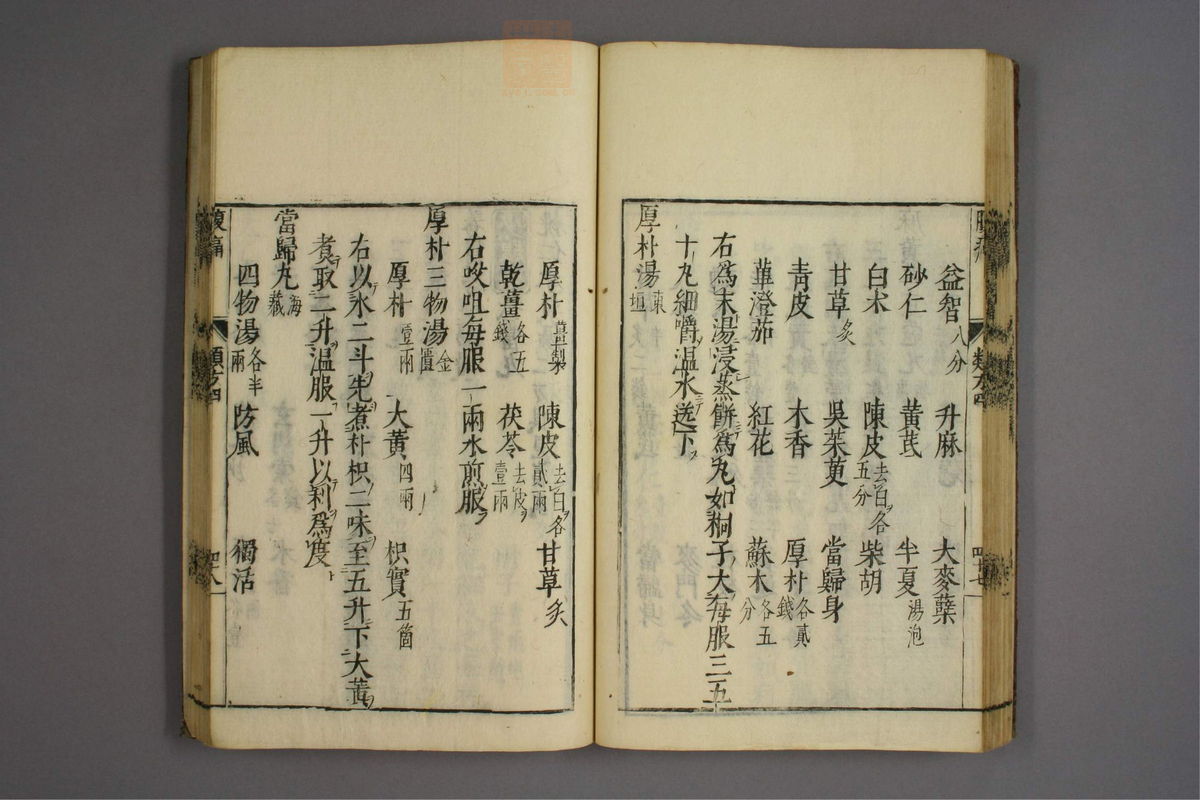 益智八分 升麻 大麥蘖
砂仁 黄芪 半夏湯泡
白朮 陳皮去白各五分 柴胡
甘草炙 吳茱萸 當歸身
青皮 木香 厚朴各貳錢
蓽澄茄 紅花 蘇木各五分
右爲末湯浸蒸餅爲丸如桐子大每服三五
十丸細嚼温水送下
厚朴湯東垣
厚朴薑製 陳皮去白各貳兩 甘草炙
乾薑各五錢 茯苓去皮壹兩
右㕮咀每服一兩水煎服
厚朴三物湯金匱
厚朴壹兩 大黄四兩 枳實五箇
右以水二斗先煮朴枳二味至五升下大黄
煮取二升温服一升以利爲度
當歸丸海藏
四物湯各半兩 防風 獨活
腹痛 類方四 四十八
類方四 四十七